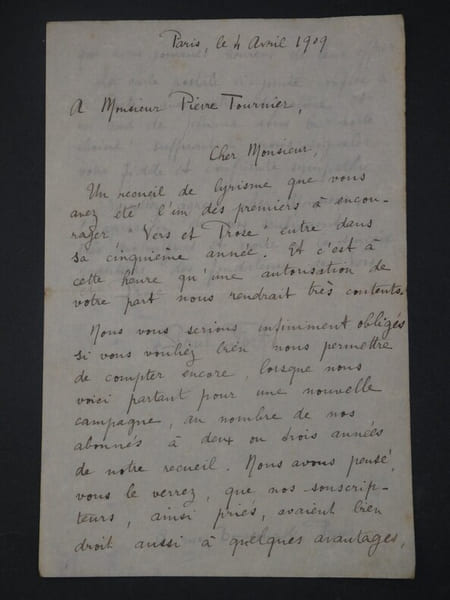 Paris, le 4 Avril 1909
A Monsieur Pierre Tournier,
Cher Monsieur,
Un recueil de lyrisme que vous
avez été l'un des premiers à encou-
rager "Vers et Prose" entre dans
sa cinquième année. Et c'est à
cette heure qu'une autorisation de
votre part nous rendrait très contents.
Nous vous serions infiniment obligés
si vous vouliez bien nous permettre
de compter encore, lorsque nous
voici partant pour une nouvelle
campagne, au nombre de nos
abonnés à deux ou trois années
de notre recueil. Nous avons pensé,
vous le verrez, que nos souscrip-
teurs, ainsi priés, avaient bien
droit aussi à quelques avantages,